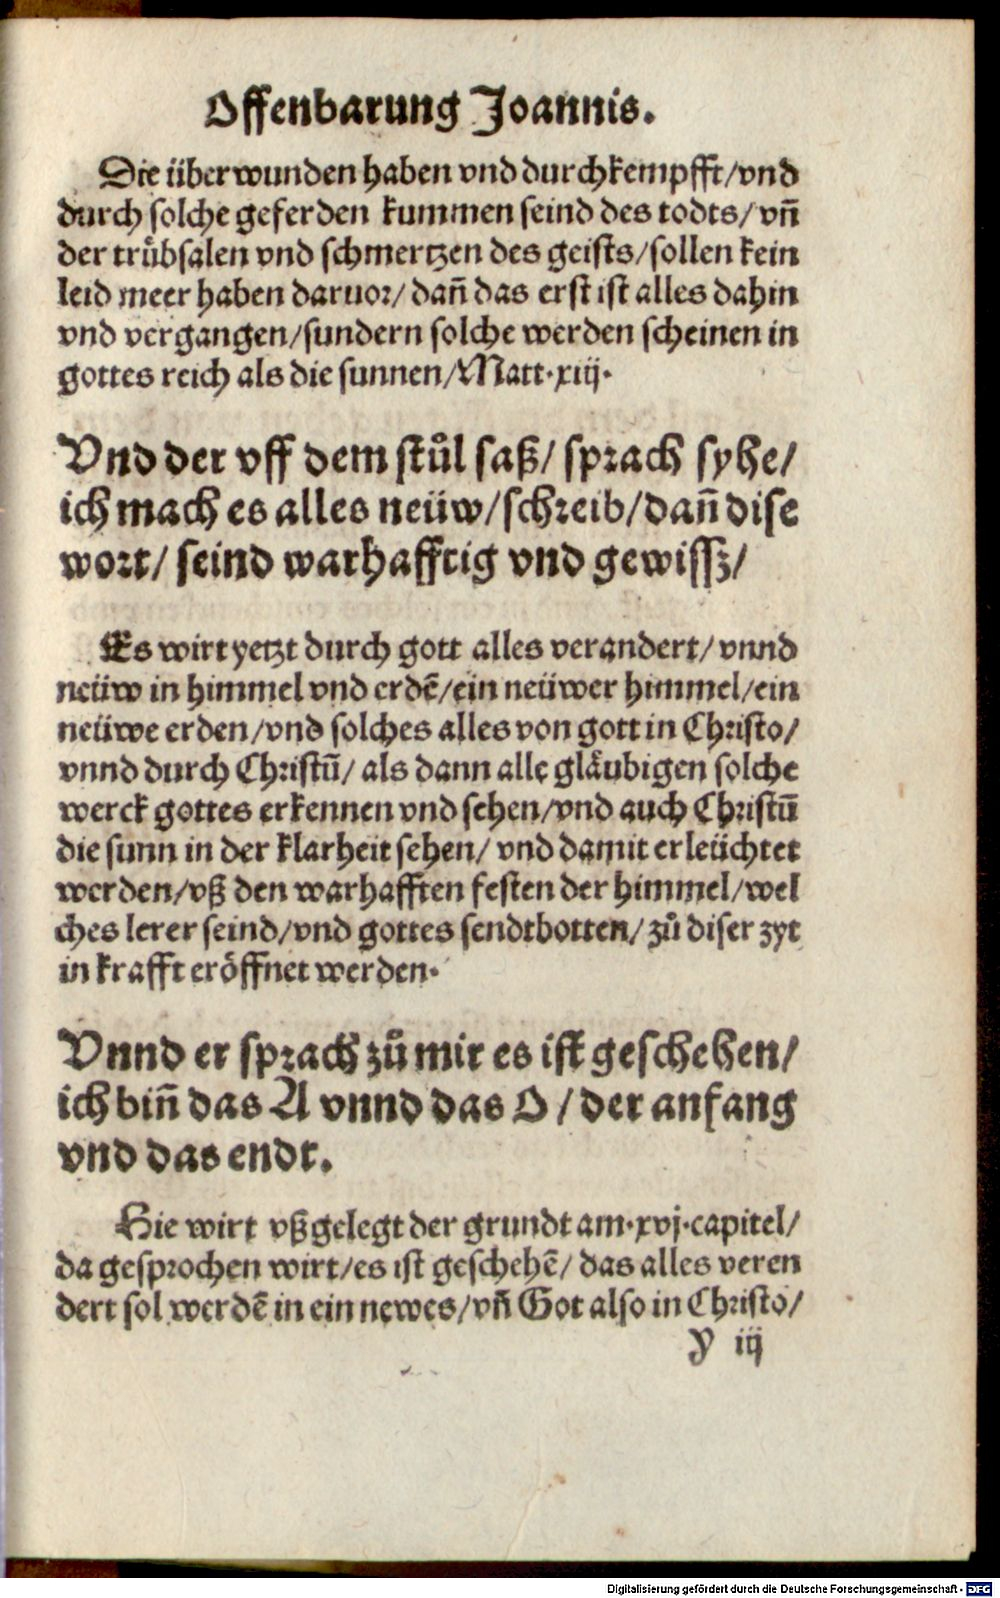 Offenbarung Joannis.
Die überwunden haben vnd durchkempfft/vnd
durch solche geferden kummen seind des todts/ vñ
der trůbsalen vnd schmertzen des geists/sollen kein
leid meer haben daruor/ dañ das erst ist alles dahin
vnd vergangen/sundern solche werden scheinen in
gottes reich als die sunnen/Matt.xiij.
Vnd der vff dem stůl saß/ sprach syhe/
ich mach es alles neüw/schreib/dañ dise
wort/ seind warhafftig vnd gewissz/
Es wirt yetzt durch gott alles verandert/ vnnd
neüw in himmel vnd erdē/ein neüwer himmel/ein
neüwe erden/vnd solches alles von gott in Christo/
vnnd durch Christū/ als dann alle gläubigen solche
werck gottes erkennen vnd sehen/vnd auch Christū
die sunn in der klarheit sehen/ vnd damit erleüchtet
werden/vß den warhafften festen der himmel/wel
ches lerer seind/vnd gottes sendtbotten/ zů diser zyt
in krafft eröffnet werden.
Vnnd er sprach zů mir es ist geschehen/
ich biñ das A vnnd das O / der anfang
vnd das endt.
Hie wirt vßgelegt der grundt am.xvj.capitel/
da gesprochen wirt/es ist geschehē/ das alles veren
dert sol werdē in ein newes/vñ Got also in Christo/
y iij
Digitalisierung gefördert durch die Deutsche Forschungsgemeinschaft - DFG